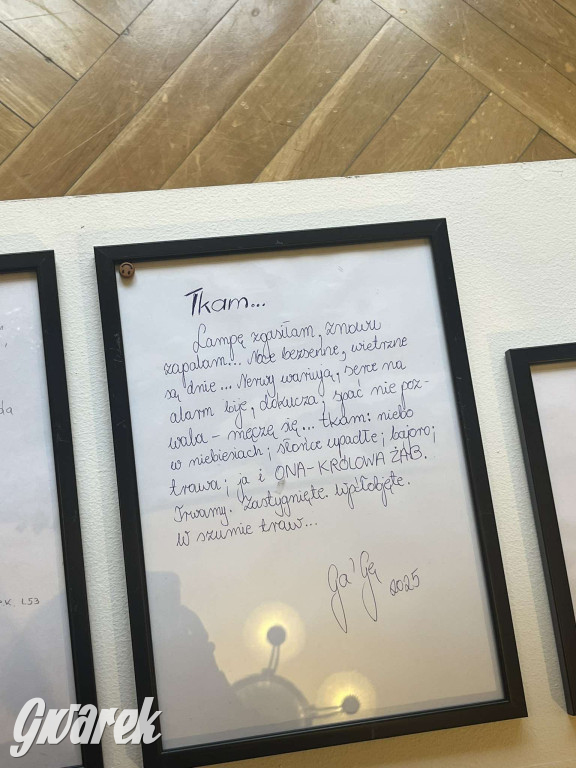 Tkam...
Lampę zgasiłam, znowu
zapalam... Noce bezsenne, wietrzne
są dnie... Nerwy wariują, serce na
alarm bije, dokucza, spać nie poz-
wala - męczę się... tkam: niebo
w niebiesiach; słońce upadłe; bajoro;
trawa; ja i ONA-KRÓLOWA ŻAB.
Trwamy. Zastygnięte. Wpółobjęte.
W szumie traw...
Ga' Gę 2025
K. 1.53
Gwarek